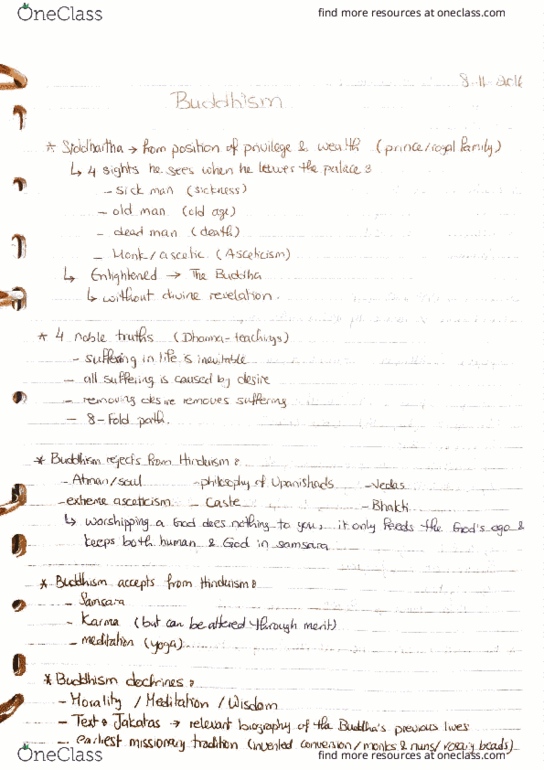 OneClass
find more resources at oneclass.com
Buddhism
* Siddhartha → from position of privilege & wealth (prince/royal family)
↳ 4 sights he sees when he leaves the palace :
- sick man (sickness)
- old man (old age)
- dead man (death)
- Monk/ascetic (Asceticism)
↳ Enlightened → The Buddha
↳ without divine revelation.
* 4 noble truths (Dharma-teachings)
- suffering in life is inevitable
- all suffering is caused by desire
- removing desire removes suffering
- 8-Fold path.
* Buddhism rejects from Hinduism :
- Atman/soul - philosophy of Upanishads - Vedas
- extreme asceticism - Caste - Bhakti
↳ worshipping a God does nothing to you, it only feeds the God's ego &
keeps both human & God in samsara
* Buddhism accepts from Hinduism :
- Samsara
- Karma (but can be altered through merit)
- meditation (yoga)
* Buddhism doctrines :
- Morality / Meditation / Wisdom
- Text : Jakatas → relevant biography of the Buddha's previous lives
- earliest missionary tradition (invented conversion/monks & nuns/rosary beads)
OneClass
find more resources at oneclass.com